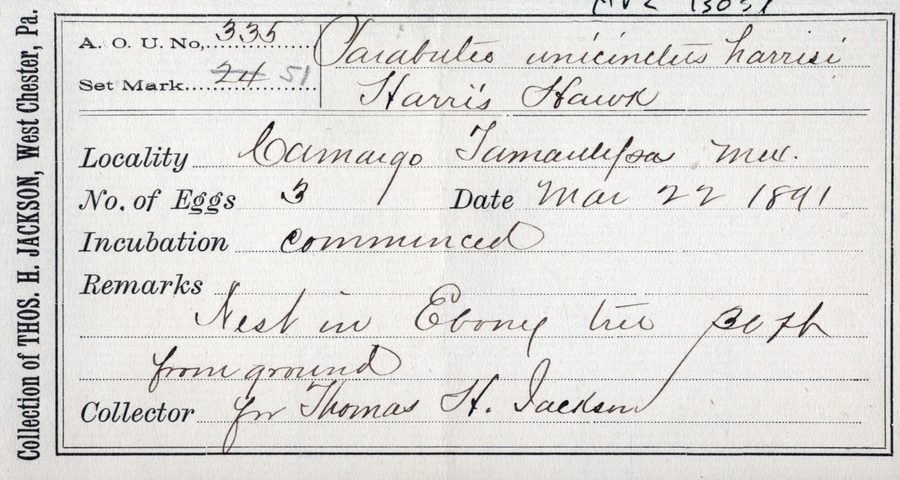 A. O. U. No. 335 Parabuteo unicinctus harrisi
Set Mark 24 51 Harris Hawk
Locality Camargo Tamaulipas Mex.
No. of Eggs 3 Date Mar 22 1891
Incubation commenced
Remarks
Nest in Ebony tree
from ground
Collector for Thomas H. Jackson
Collection of THOS. H. JACKSON, West Chester, Pa.